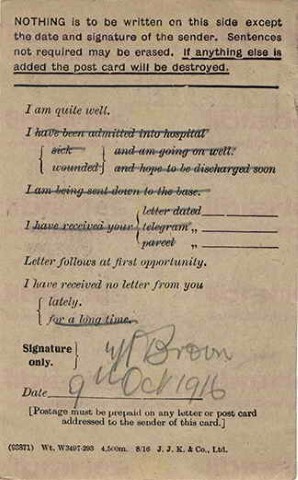 NOTHING is to be written on this side except
the date and signature of the sender. Sentences
not required may be erased. If anything else is
added the post card will be destroyed.
I am quite well.
I have been admitted into hospital
sick and am going on well.
wounded and hope to be discharged soon
I am being sent down to the base.
letter dated
I have received your telegram „
parcel „
Letter follows at first opportunity.
I have received no letter from you
lately.
for a long time.
Signature
only.
Brown
Date 9th Oct 1916
[Postage must be prepaid on any letter or post card
addressed to the sender of this card.]
(93871) Wt. W3497-293 4,500m. 8/16 J. J. K. & Co., Ltd.